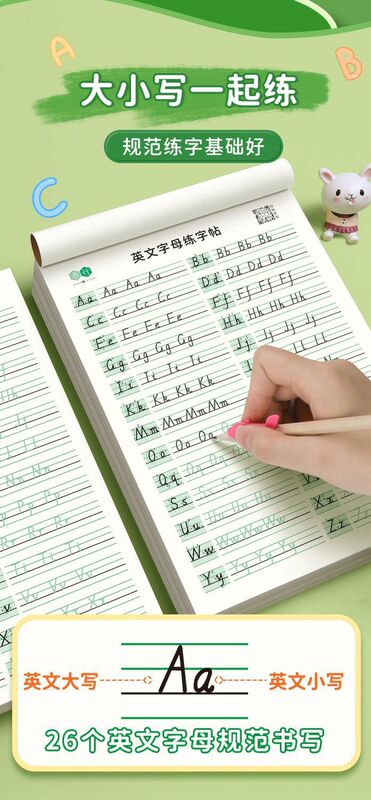 A
B
大小写一起练
规范练字基础好
C
英文字母练字帖
Aa Aa Aa Aa
Bb Bb Bb Bb
Cc Cc Cc Cc
Dd Dd Dd Dd
Ee Ee Ee Ee
Ff Ff Ff Ff
Gg Gg Gg Gg
Hh Hh Hh Hh
Ii Ii Ii Ii
Jj Jj Jj Jj
Kk Kk Kk Kk
Mm Mm Mm Mm
Oo Oo Oo
Qq Qq Qq Qq
Ss Ss Ss Ss
Uu Uu Uu Uu
Xx
Ww Ww Ww Ww
Zz
Yy Yy Yy Yy
英文大写
Aa
英文小写
26个英文字母规范书写